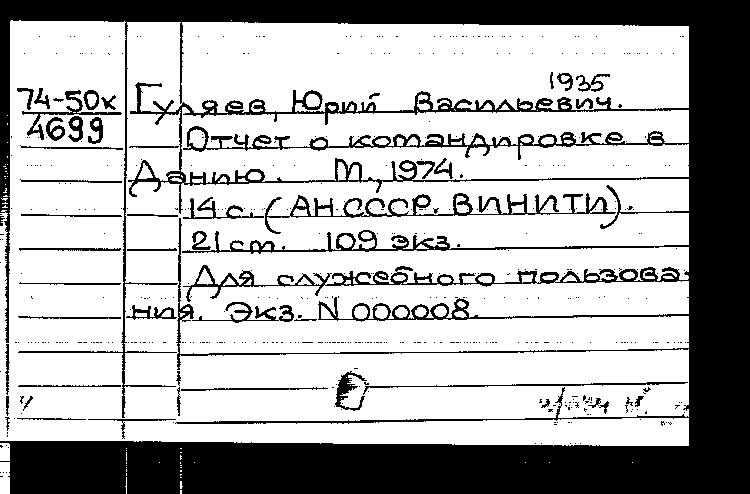 1935
74-50к Гуляев, Юрий Васильевич.
4699
Отчет о командировке в
Данию. М., 1974.
14 с. (АН СССР. ВИНИТИ).
21 ст. 109 экз.
Для служебного пользова-
ния. Экз. N 000008.